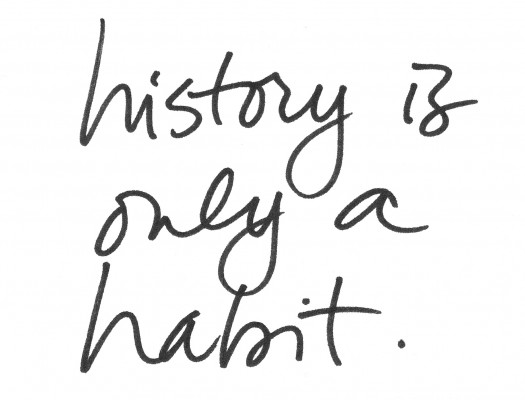 history is
only a
habit.